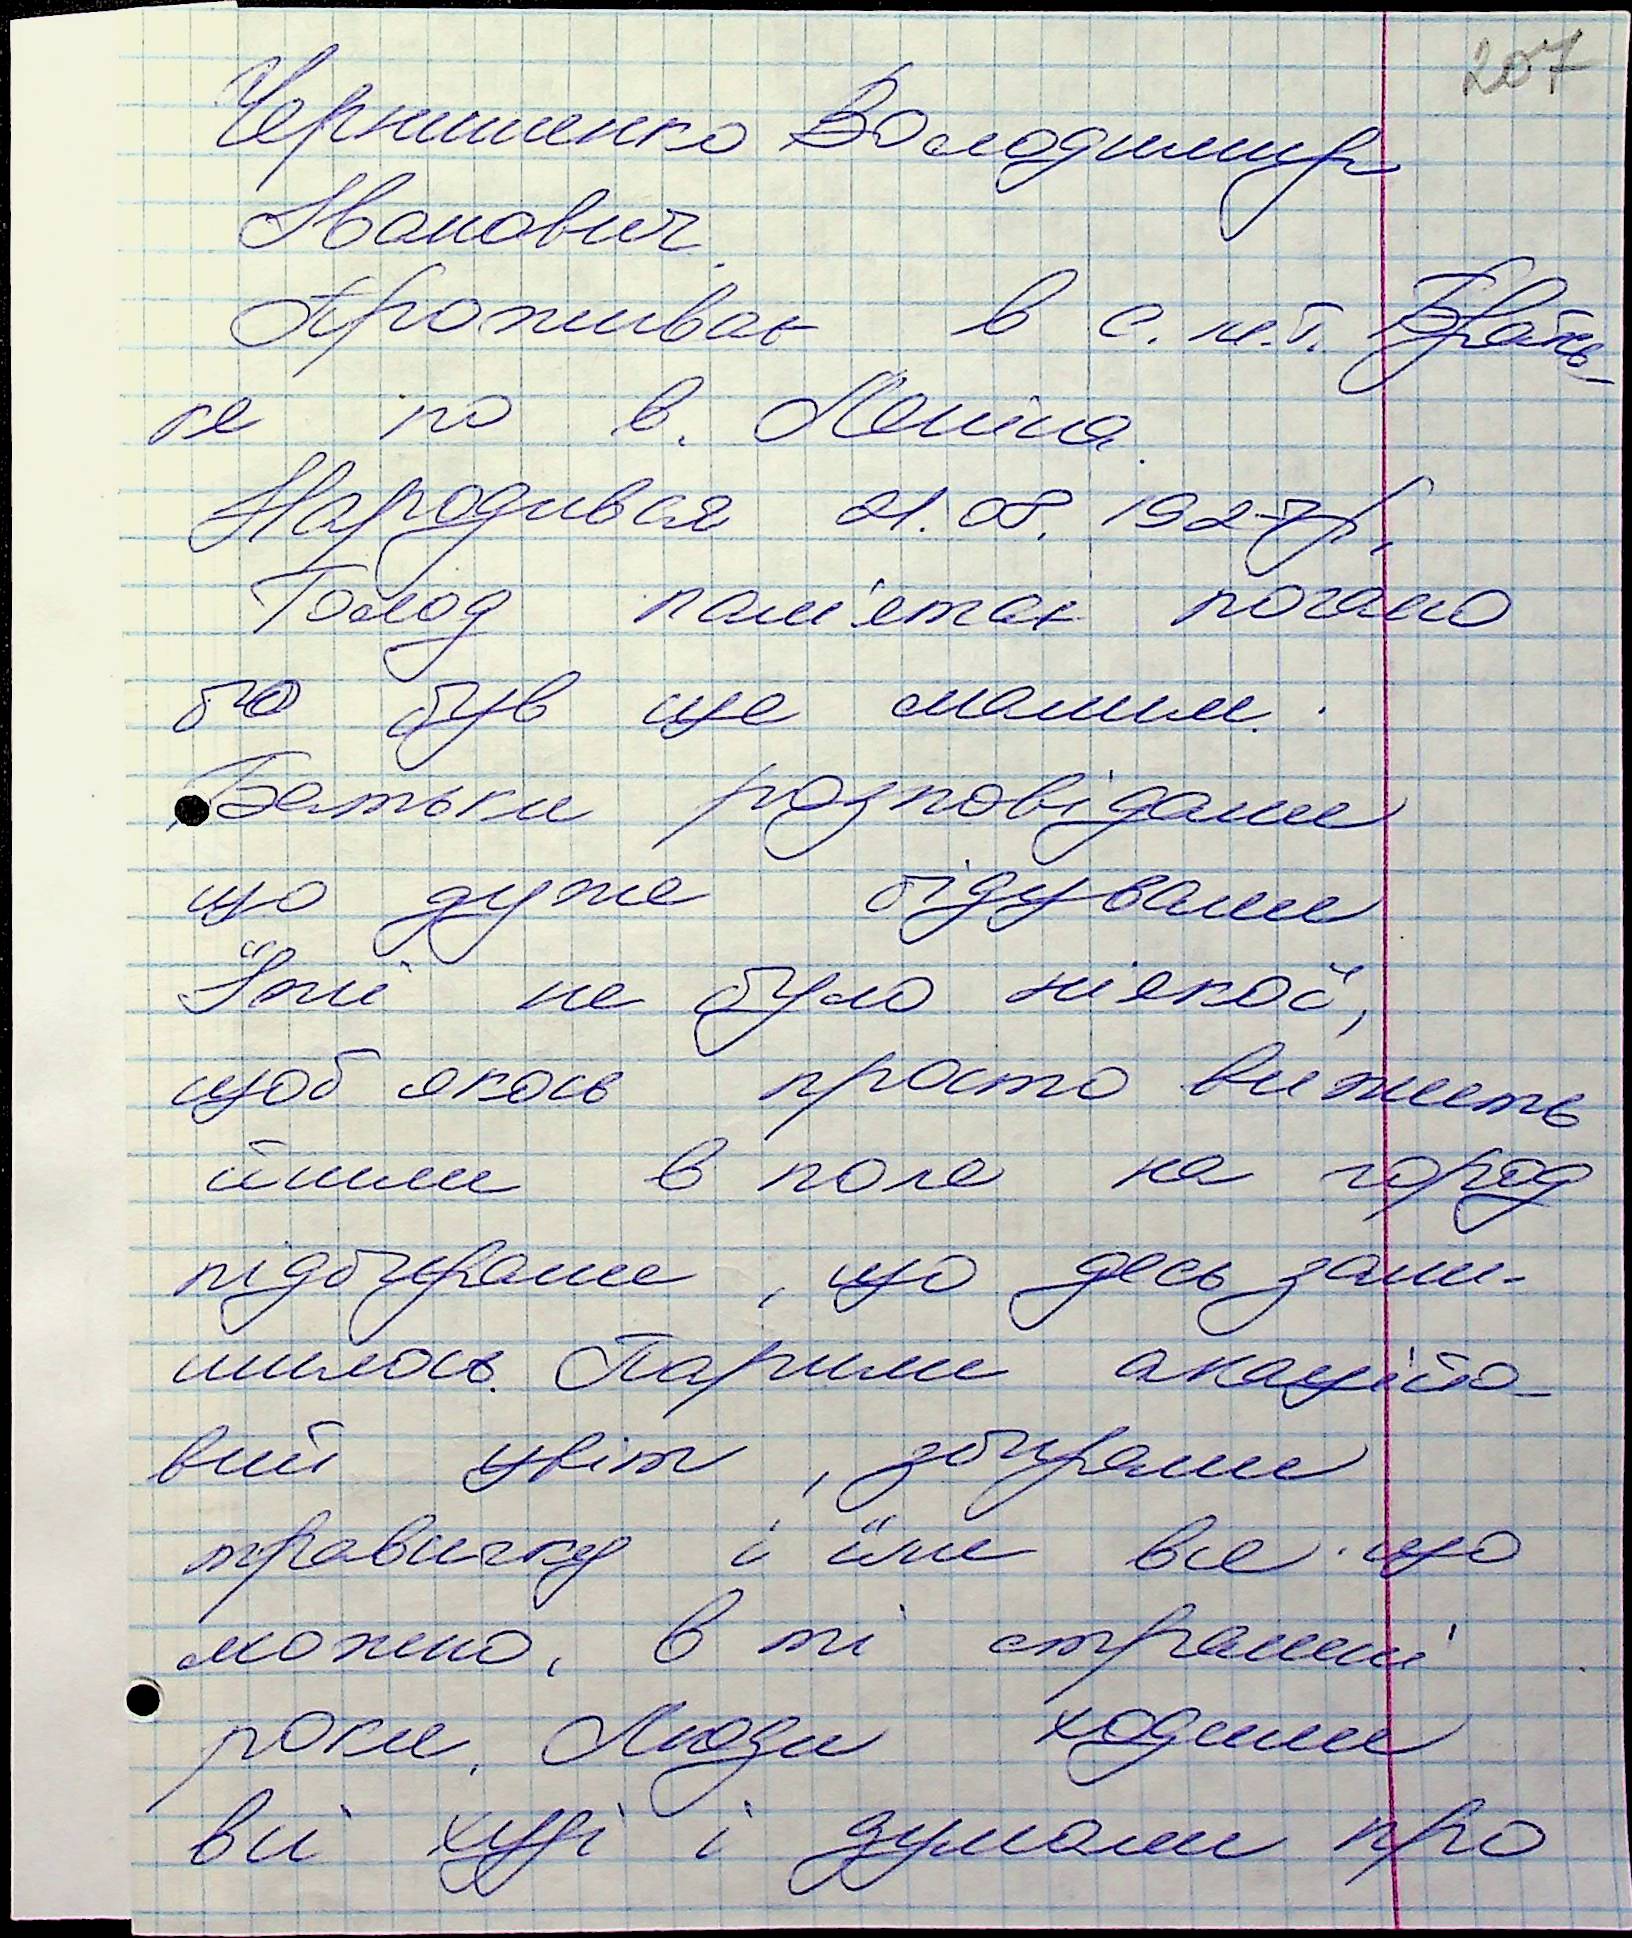 207
Чернишенко Володимир
Іванович.
Проживає в с.м.т. Братсь-
ке по в. Леніна.
Народився 21.08.1927р.
Голод пам'ятає погано
бо був ще малим.
Батьки розповідали
що дуже бідували
Їжі не було ніякої,
щоб якось просто вижить
йшли в поле на город
підбирали, що десь зали-
шилось. Парили акаційо-
вий цвіт, збирали
травичку і їли все що
можно, в ті страшні
роки. Люди ходили
всі худі і думали про